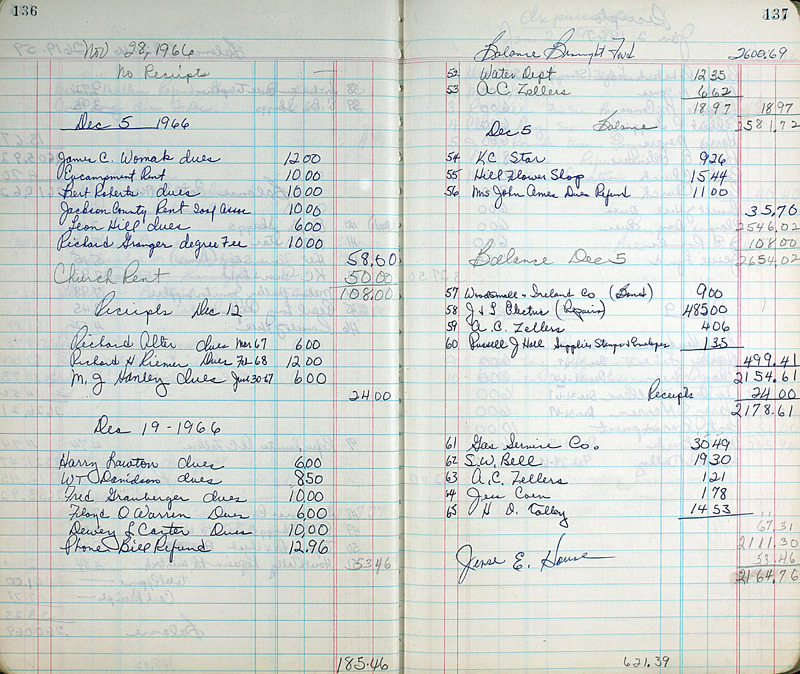 136
Nov 28, 1966
No Receipts —
Dec 5 1966
James C. Womak dues 12 00
Encampment Rent 10 00
Bert Roberts dues 10 00
Jackson County Rent Assoc 10 00
Leon Hill dues 6 00
Richard Granger degree Fee 10 00
58.00
Church Rent 50 00
108.00
Receipts Dec 12
Richard Alter dues Mar 67 6 00
Richard H Riemer Dues Feb-68 12 00
M. J Hanley dues June 30-67 6 00
24 00
Dec 19-1966
Harry Lawton dues 6 00
WT Davidson dues 8 50
Fred Granberger dues 10,00
Floyd O Warren Dues 6,00
Dewey L Carter Dues 10,00
Phone Bill Refund 12.96
53 46
185.46
137
Balance Brought Fwd 2600.69
52 Water Dept 12 35
53 A.C. Zellers 6 62
18 97 18 97
Dec 5 Balance 2581.72
54 KC Star 9 26
55 Hill Flower Shop 15 44
56 Mrs John Ames Dues Refund 11 00
35,70
2546.02
108 00
Balance Dec 5 2654.02
57 Woodsmall & Ireland Co (Bond) 9 00
58 J & L Electric (Repairs) 485 00
59 A.C. Zellers 4 06
60 Russell J Hall Supplies Stamps & Envelopes 1 35
499.41
2154.61
Receipts 24 00
2178.61
61 Gas Service Co. 30 49
62 S.W. Bell 19 30
63 A.C. Zellers 1 21
64 Jess Coen 1 78
65 H D. Tolley 14 53
67.31
2111.30
53.46
2164.76
Jesse E. House
621.39